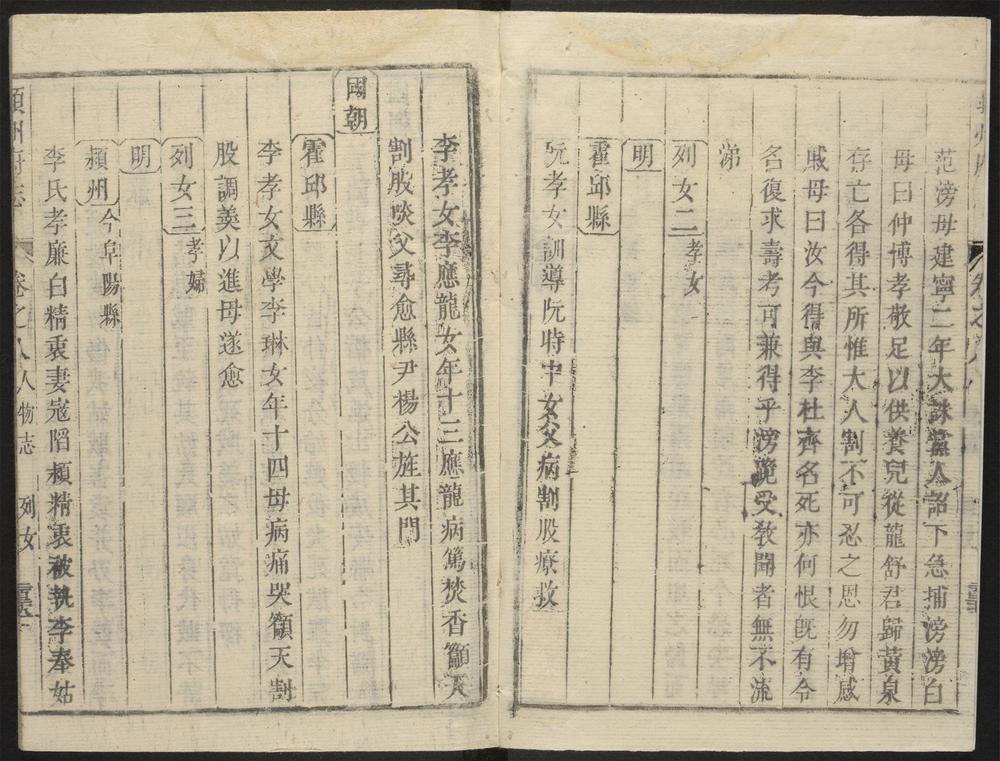 范滂母建寧二年大誅黨人詔下急捕滂滂白
母曰仲博孝敬足以供養兒從龍舒君歸黃泉
存亡各得其所惟大人割不可忍之恩勿增感
戚母曰汝今得與李杜齊名死亦何恨旣有令
名復求壽考可兼得乎滂跪受敎聞者無不流
涕
列女二孝女
明
霍邱縣
阮孝女訓導阮時中女父病割股療救
李孝女李應龍女年十三應龍病篤焚香籲天
割股啖父尋愈縣尹楊公旌其門
國朝
霍邱縣
李孝女文學李琳女年十四母病痛哭籲天割
股調羹以進母遂愈
列女三孝婦
明
潁州今阜陽縣
李氏孝廉白精衷妻寇陷潁精衷被執李奉姑
潁州府志 卷之八人物志 列女